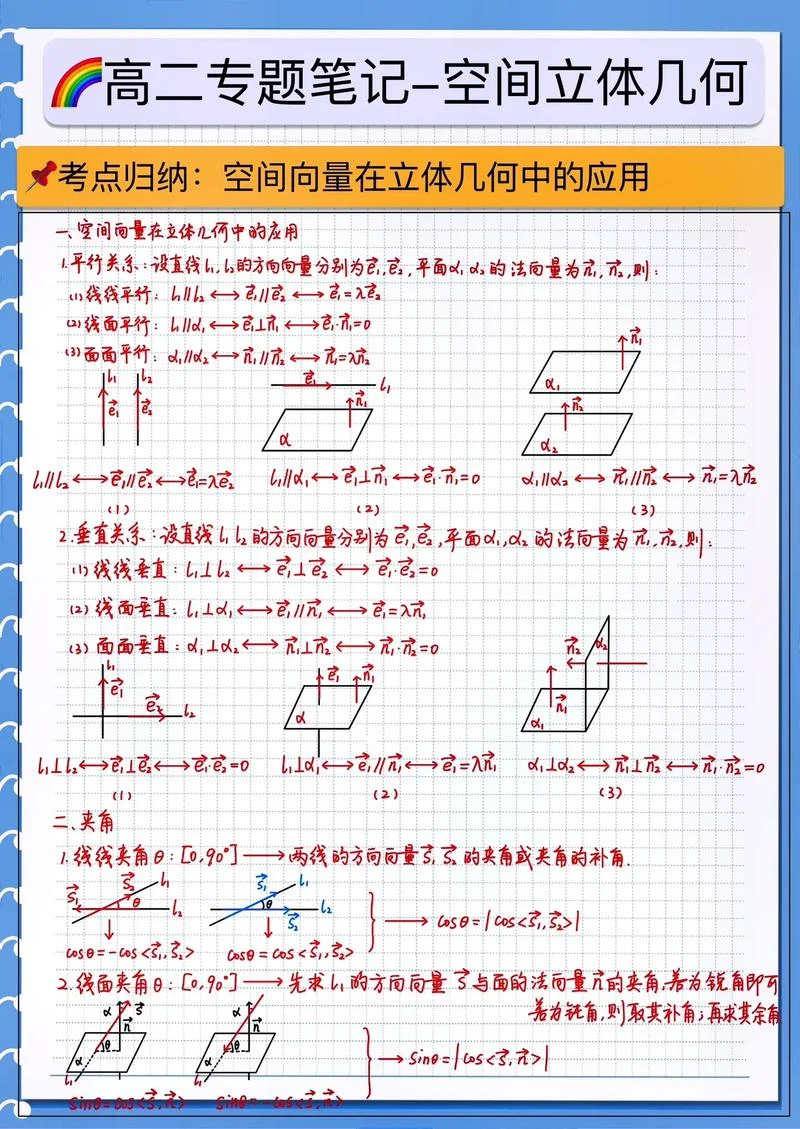 🌈高二专题笔记-空间立体几何
📌考点归纳：空间向量在立体几何中的应用
一、空间向量在立体几何中的应用
1.平行关系：设直线l₁, l₂的方向向量分别为e⃗₁, e⃗₂, 平面α₁, α₂的法向量为n⃗₁, n⃗₂, 则：
(1)线线平行：l₁∥l₂ ⟷ e⃗₁∥e⃗₂ ⟷ e⃗₁=λe⃗₂
(2)线面平行：l₁∥α₁ ⟷ e⃗₁⊥n⃗₁ ⟷ e⃗₁·n⃗₁=0
(3)面面平行：α₁∥α₂ ⟷ n⃗₁∥n⃗₂ ⟷ n⃗₁=λn⃗₂
l₁ l₂ e⃗₁ e⃗₂
e⃗₁ l₁ n⃗₁ α
n⃗₁ α₁ n⃗₂ α₂
l₁∥l₂ ⟷ e⃗₁∥e⃗₂ ⟷ e⃗₁=λe⃗₂ l₁∥α₁ ⟷ e⃗₁⊥n⃗₁ ⟷ e⃗₁·n⃗₁=0 α₁∥α₂ ⟷ n⃗₁∥n⃗₂ ⟷ n⃗₁=λn⃗₂
(1) (2) (3)
2.垂直关系：设直线l₁, l₂的方向向量分别为e⃗₁, e⃗₂, 平面α₁, α₂的法向量为n⃗₁, n⃗₂, 则：
(1)线线垂直：l₁⊥l₂ ⟷ e⃗₁⊥e⃗₂ ⟷ e⃗₁·e⃗₂=0
(2)线面垂直：l₁⊥α₁ ⟷ e⃗₁∥n⃗₁ ⟷ e⃗₁=λn⃗₁
(3)面面垂直：α₁⊥α₂ ⟷ n⃗₁⊥n⃗₂ ⟷ n⃗₁·n⃗₂=0
l₁ e⃗₁ e⃗₂ l₂
e⃗₁ n⃗₁ α
n⃗₂ α₂ n⃗₁ α₁
l₁⊥l₂ ⟷ e⃗₁⊥e⃗₂ ⟷ e⃗₁·e⃗₂=0 l₁⊥α₁ ⟷ e⃗₁∥n⃗₁ ⟷ e⃗₁=λn⃗₁ α₁⊥α₂ ⟷ n⃗₁⊥n⃗₂ ⟷ n⃗₁·n⃗₂=0
(1) (2) (3)
二、夹角
1.线线夹角θ：[0,90°] ⟶ 两线的方向向量s⃗₁, s⃗₂的夹角或夹角的补角.
s⃗₁ s⃗₂ l₁ θ l₂
s⃗₁ l₁ θ s⃗₂ l₂
⟶ cosθ=|cos<s⃗₁,s⃗₂>|
cosθ=-cos<s⃗₁,s⃗₂> cosθ=cos<s⃗₁,s⃗₂>
2.线面夹角θ：[0,90°] ⟶ 先求l₁的方向向量s⃗与面的法向量n⃗的夹角，若为锐角即可
若为钝角，则取其补角；再求其余角
α s⃗ n⃗ θ α l₁
α n⃗ θ α l₁
⟶ sinθ=|cos<s⃗,n⃗>|
sinθ=cos<s⃗,n⃗> sinθ=-cos<s⃗,n⃗>